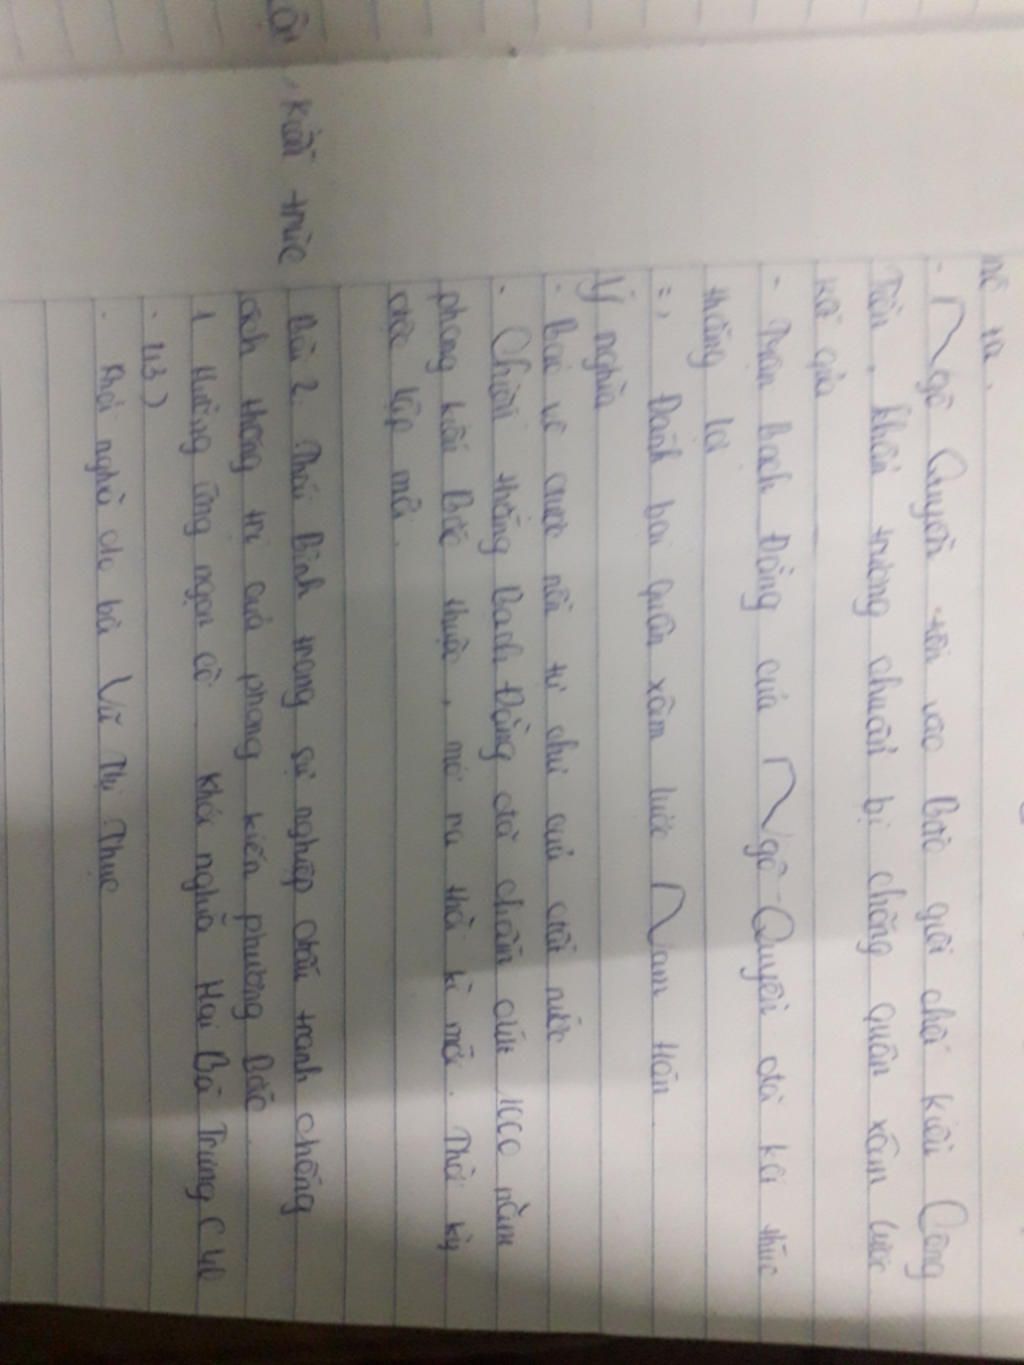 nổ ra.
- Ngô Quyền tiến vào Bắc giết chết Kiều Công
Tiễn, khẩn trương chuẩn bị chống quân xâm lược
kết
- Trận Bạch Đằng của Ngô Quyền đã kết thúc
thắng lợi
=> Đánh bại quân xâm lược Nam Hán
Ý nghĩa
- Bảo vệ được nền tự chủ của đất nước
- Chiến thắng Bạch Đằng đã chấm dứt 1000 năm
phong kiến Bắc thuộc, mở ra thời kì mới. Thời kỳ
độc lập mới.
Kiến trúc
Bài 2: Thái Bình trong sự nghiệp đấu tranh chống
ách thống trị của phong kiến phương Bắc.
1 Hưởng ứng ngọn cờ khởi nghĩa Hai Bà Trưng (40
- 43)
- Khởi nghĩa do bà Vũ Thị Thục